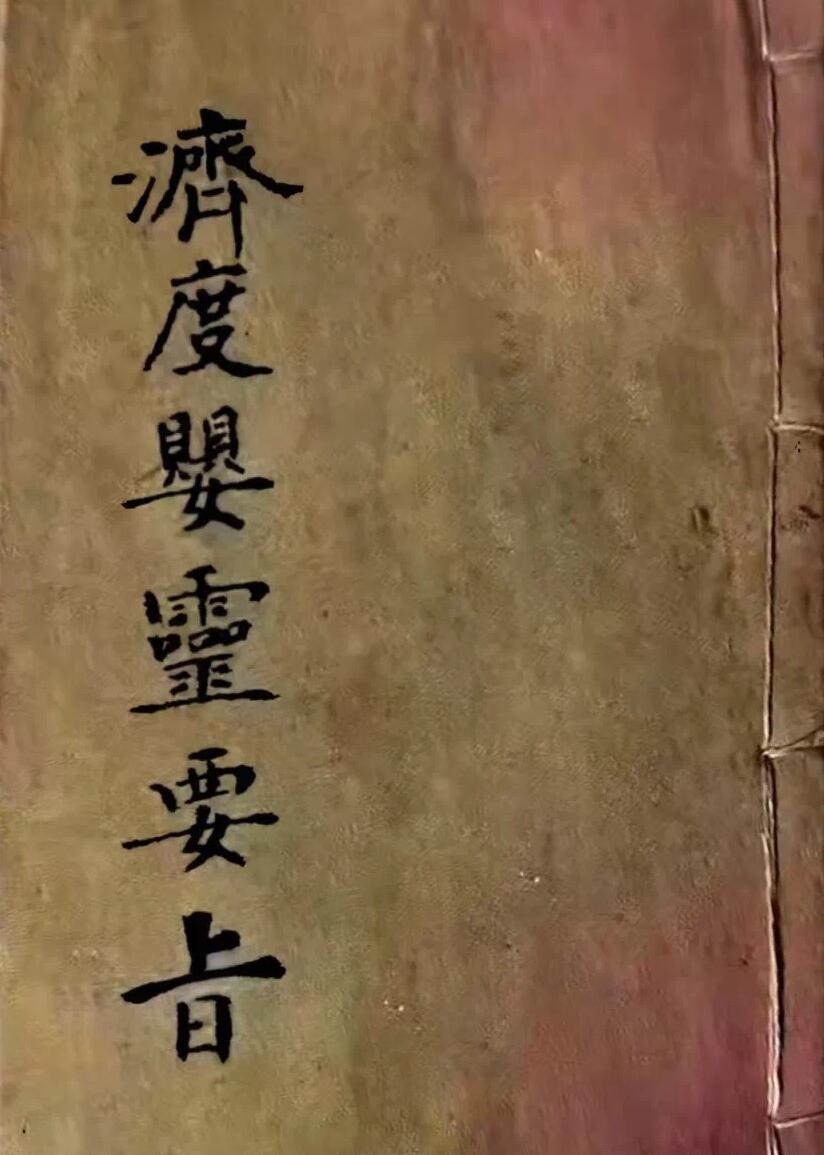 濟度嬰靈要旨